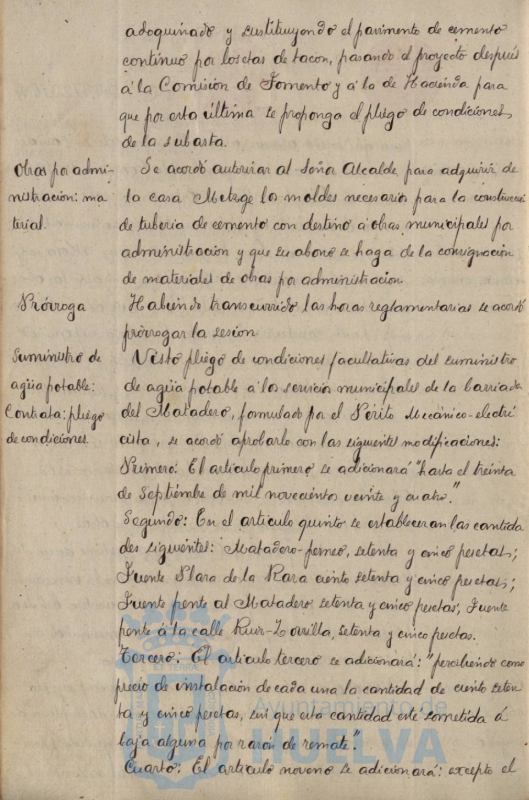 adoquinado y sustituyendo el pavimento de cemento
continuo por losetas de tacon, pasando el proyecto después
á la Comision de Fomento y á la de Hacienda para
que por esta última se proponga el pliego de condiciones
de la subasta.
Obras por admi-
nistracion: ma
terial
Se acordó autorizar al Señor Alcalde para adquirir de
la casa Metzge los moldes necesarios para la construcción
de tuberia de cemento con destino á obras municipales por
administracion y que su abono se haga de la consignación
de materiales de obras por administracion.
Prórroga
Habiendo transcurrido las horas reglamentarias se acordó
prórrogar la sesion
Suministro de
agüa potable:
Contrata: pliego
de condiciones.
Visto pliego de condiciones facultativas del suministro
de agüa potable á los servicios municipales de la barriada
del Matadero, formulado por el Périto Mecánico-electri
cista, se acordó aprobarlo con las siguientes modificaciones:
Primero: El artículo primero se adicionará "hasta el treinta
de Septiémbre de mil noveciento veinte y cuatro."
Segundo: En el artículo quinto se estableceran las cantida
des siguientes: Matadero-perneo, setenta y cinco pesetas;
Fuente Plaza de la Rara ciento setenta y cinco pesetas;
Fuente frente al Matadero setenta y cinco pesetas; Fuente
frente á la calle Ruiz-Zorrilla, setenta y cinco pesetas.
Tercero: El artículo tercero se adicionará: "percibiendo como
precio de instalación de cada una la cantidad de ciento seten
ta y cinco pesetas, sin que esta cantidad esté sometida á
baja alguna por razón de remate."
Cuarto: El artículo noveno se adicionará: excepto el
Ayuntamiento de
HUELVA